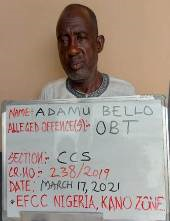 NAME:- ADAMU BELLO
ALLEGED OFFENCE(S):- OBT
SECTION:- CCS
CR.NO:- 238/2019
DATE:- MARCH 17, 2021
*EFCC NIGERIA, KANO ZONE.